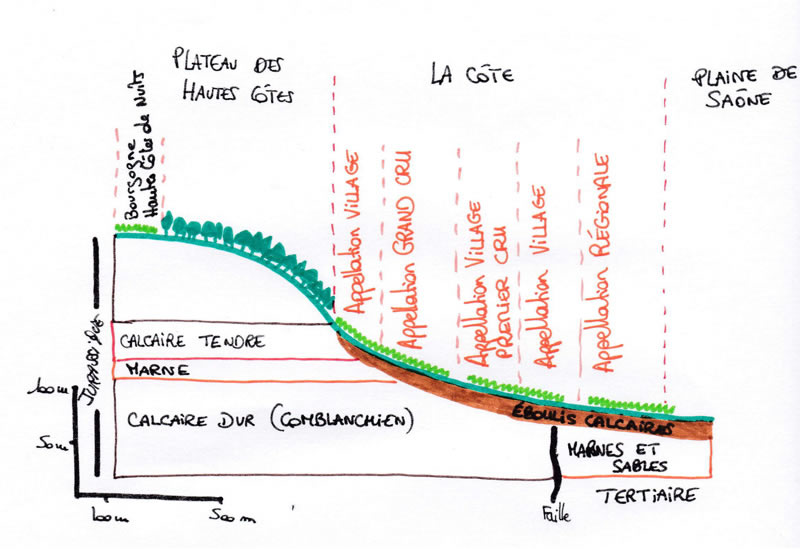 PLATEAU DES
HAUTES CÔTES
LA CÔTE
PLAINE DE
SAÔNE
Bourgogne
Hautes Côtes de Nuits
Appellation VILLAGE
Appellation GRAND CRU
Appellation VILLAGE
PREMIER CRU
Appellation VILLAGE
Appellation RÉGIONALE
CALCAIRE TENDRE
MARNE
CALCAIRE DUR (COMBLANCHIEN)
ÉBOULIS CALCAIRES
MARNES ET
SABLES
TERTIAIRE
Faille
100m
50m
100m
500m